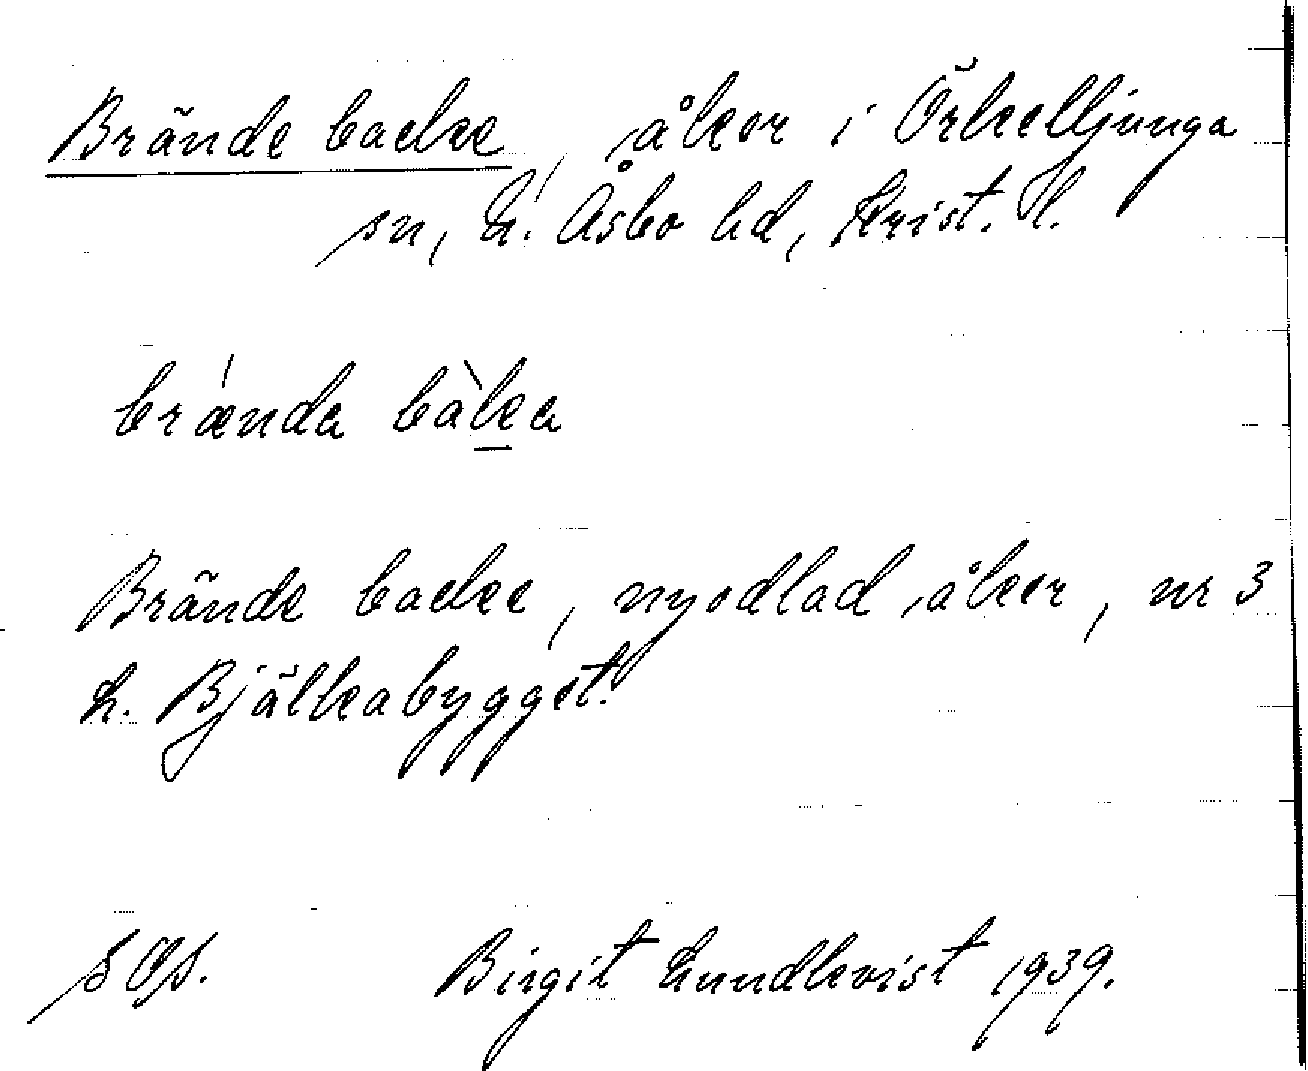 Brände backe, åker i Örkelljunga
sn, N. Åsbo hd, Krist. l.
brända bàka
Brände backe, nyodlad åker, nr 3
h. Bjälkabygget.
Birgit Lundkvist 1939.